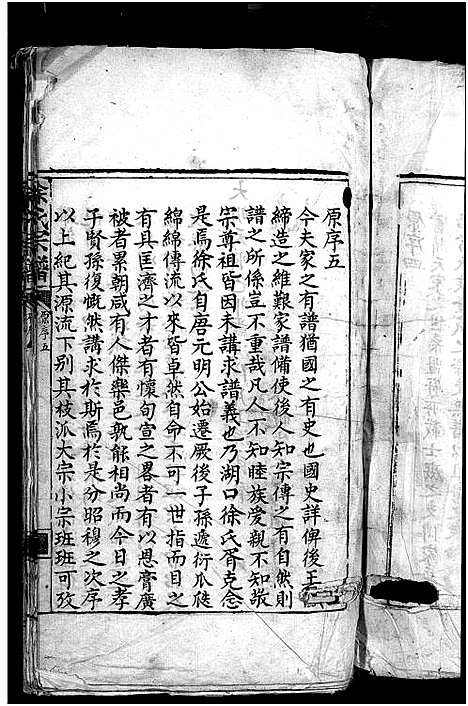 原序五
今夫家之有譜猶國之有史也國史詳俾後王
締造之維艱家譜備使後人知宗傳之有自然則
譜之所係豈不重哉凡人不知睦族愛親不知敬
宗尊祖皆因未講求譜義也乃湖口徐氏胥克念
是焉徐氏自唐元明公始遷厥後子孫遞衍瓜瓞
綿綿傳流以來皆卓然自命不可一世指而目之
有具匡濟之才者有懷旬宣之畧者有以恩膏廣
被者累朝咸有人傑樂邑孰能相尚而今日之孝
子賢孫復慨然講求於斯焉於是分昭穆之次序
以上紀其源流下別其枝派大宗小宗班班可攷
徐氏宗譜
原序五
原序四